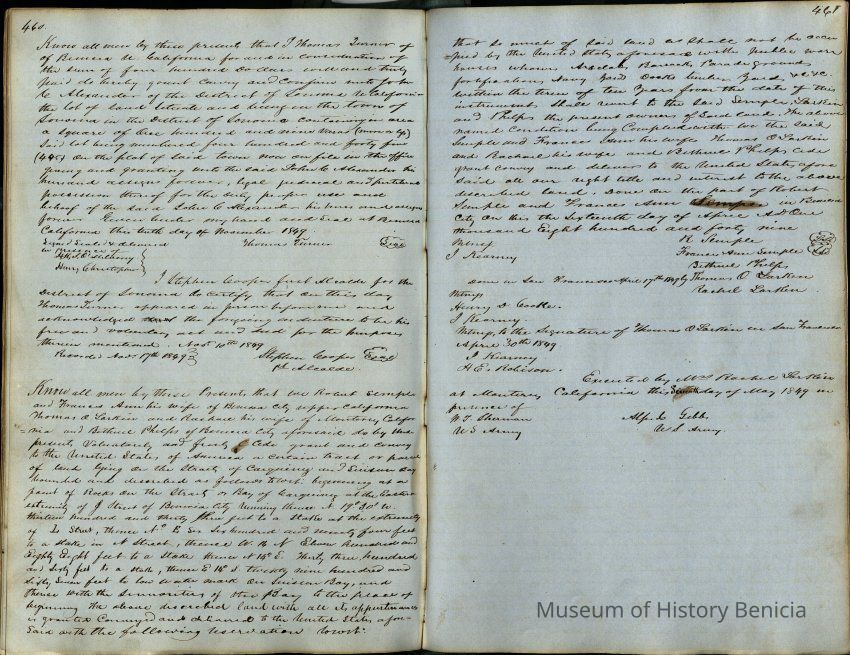 460.
Know all men by these presents that I Thomas Turner of
of Benicia U. California for and in consideration of
the sum of four hundred dollars
paid do hereby grant convey and confirm unto John
C. Alexander of the District of Sonoma U. California
the lot of land situate and being in the town of
Sonoma in the District of Sonoma containing in area
a square of One hundred and nine
Said lot being numbered four hundred and forty five
(445) On the plat of said town now on file in the office
giving and granting unto the said John C. Alexander his
heirs and assigns forever, legal judicial and
possession thereof for the only proper use and
behoof of the said John C. Alexander his heirs and assigns
forever Given under my hand and Seal at Benicia
California this tenth day of November 1849
Signed Sealed & delivered
in presence of Thomas Turner Seal
Henry Christopher
I Stephen Cooper first Alcalde for the
District of Sonoma do certify that on this day
Thomas Turner appeared in person before me and
acknowledged the foregoing signature to be his
free and voluntary act and deed for the purposes
therein mentioned Nov 10th 1849
Recorded Nov 17th 1849 Stephen Cooper Seal
Alcalde.
Know all men by these Presents that we Robert Semple
and Frances Ann his wife of Benicia City upper California
Thomas O Larkin and Rachael his wife of Monterey Califor
nia and Bethuel Phelps of Benicia City aforesaid do by these
presents Voluntarily and freely Cede grant and convey
to the United States of America a certain tract or parcel
of land lying on the Straits of Carquinez and Suisun Bay
bounded and described as follows to wit: beginning at a
point of Rocks on the Straits or Bay of Carquinez at the Eastern
extremity of J Street of Benicia City running thence N 19° 30' W.
thirteen hundred and thirty three feet to a stake at the extremity
of Street, thence N. E Six hundred and ninety four feet
to a stake in N Street, thence W. N Eleven hundred and
Eighty Eight feet to a Stake thence N 14° E. Thirty three hundred
and Sixty feet to a stake, thence E S. twenty nine hundred and
Sixty Seven feet to low water mark on Suisun Bay, and
thence with the of the Bay to the place of
beginning the above described land with all its appurtenances
is granted Conveyed and delivered to the United States afore
Said with the following reservation to wit:
461
that so much of said land as shall not be occu
pied by the United States aforesaid with public ware
houses wharves Arsenals, Barracks Parade grounds
fortifications, Navy Yard Docks lumber Yards &c &c.
within the term of ten Years from the date of this
instrument shall revert to the said Semple, Larkin
and Phelps the present owners of Said land. The above
named Condition being Complied with we the said
Semple and Frances Ann his wife Thomas O Larkin
and Rachael his wife and Bethuel Phelps cede
grant convey and deliver to the United States afore
said all our right title and interest to the above
described land, Done on the part of Robert
Semple and Frances Ann Semple in Benicia
City on this the Sixteenth day of April A.D One
thousand Eight hundred and forty nine
Witness R. Semple Seal
J Kearny Frances Ann Semple Seal
Bethuel Phelps
Done in San Francisco April 17th 1849 by Thomas O Larkin
Witness Rachel Larkin
Henry D Cooke.
J Kearny
Witness to the Signature of Thomas O Larkin in San Francisco
April 30th 1849
J Kearny
H E. Robinson.
Executed by Mrs Rachel Larkin
at Monterey California this day of May 1849 in
presence of
W T. Sherman Alfred Gibbs
U S Army U. S Army.
Museum of History Benicia